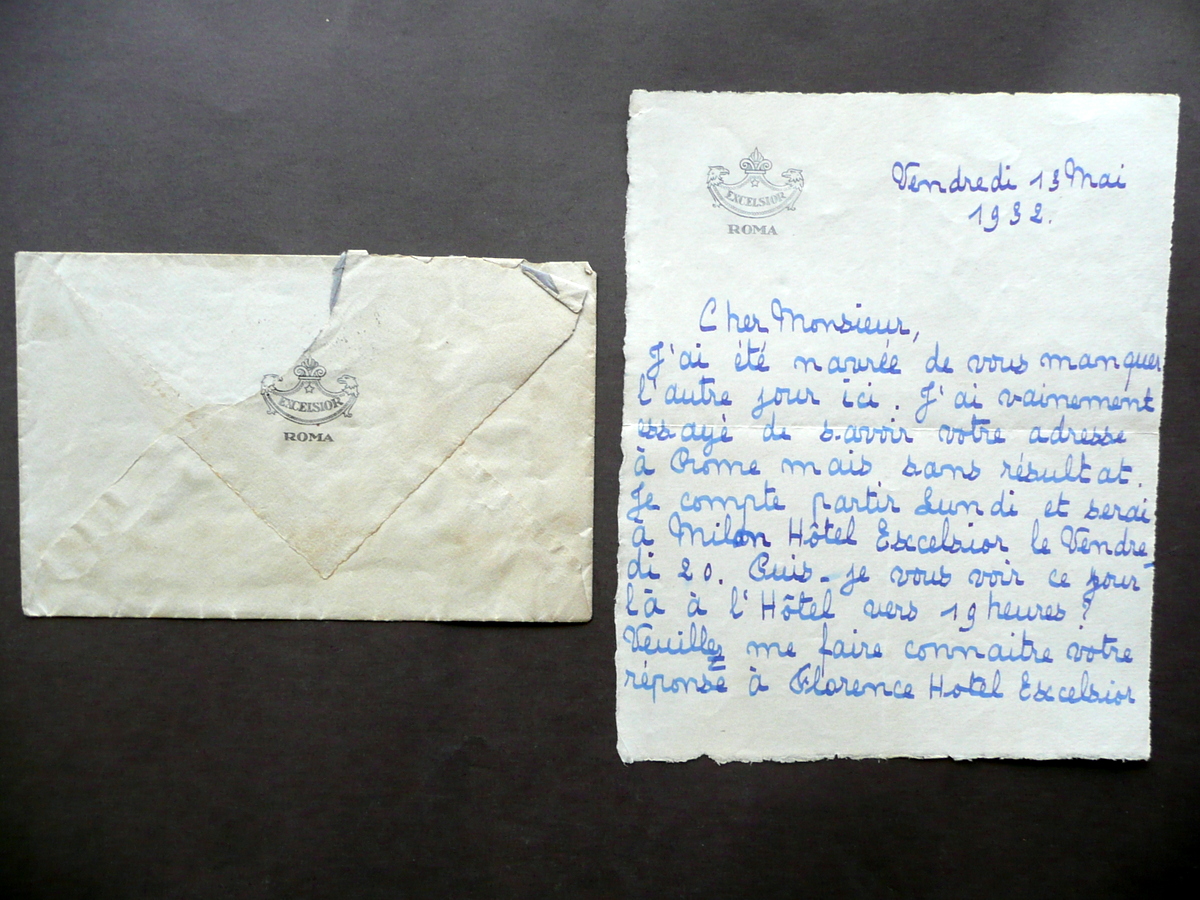 EXCELSIOR
ROMA
EXCELSIOR
ROMA
Vendredi 13 Mai
1932.
Cher Monsieur,
J'ai été navrée de vous manquer
l'autre jour ici. J'ai vainement
essayé de savoir votre adresse
à Rome mais sans résultat.
Je compte partir Lundi et serai
à Milan Hôtel Excelsior le Vendre
di 20. Puis-je vous voir ce jour
là à l'Hôtel vers 19 heures?
Veuillez me faire connaitre votre
réponse à Florence Hotel Excelsior